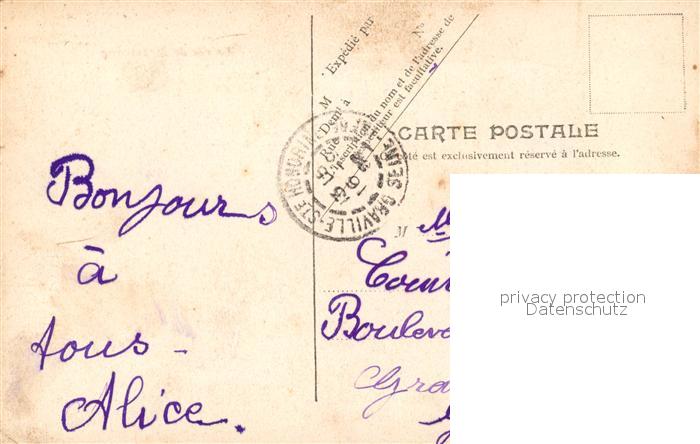 Expédié par
No
M
Demt à
Rue
L'inscription du nom et de l'adresse de
l'expéditeur est facultative.
CARTE POSTALE
Ce côté est exclusivement réservé à l'adresse.
GRAVILLE-STE HONORINE
SEINE
Bonjours
à
tous -
Alice.
M
Boulev
Gra
privacy protection
Datenschutz